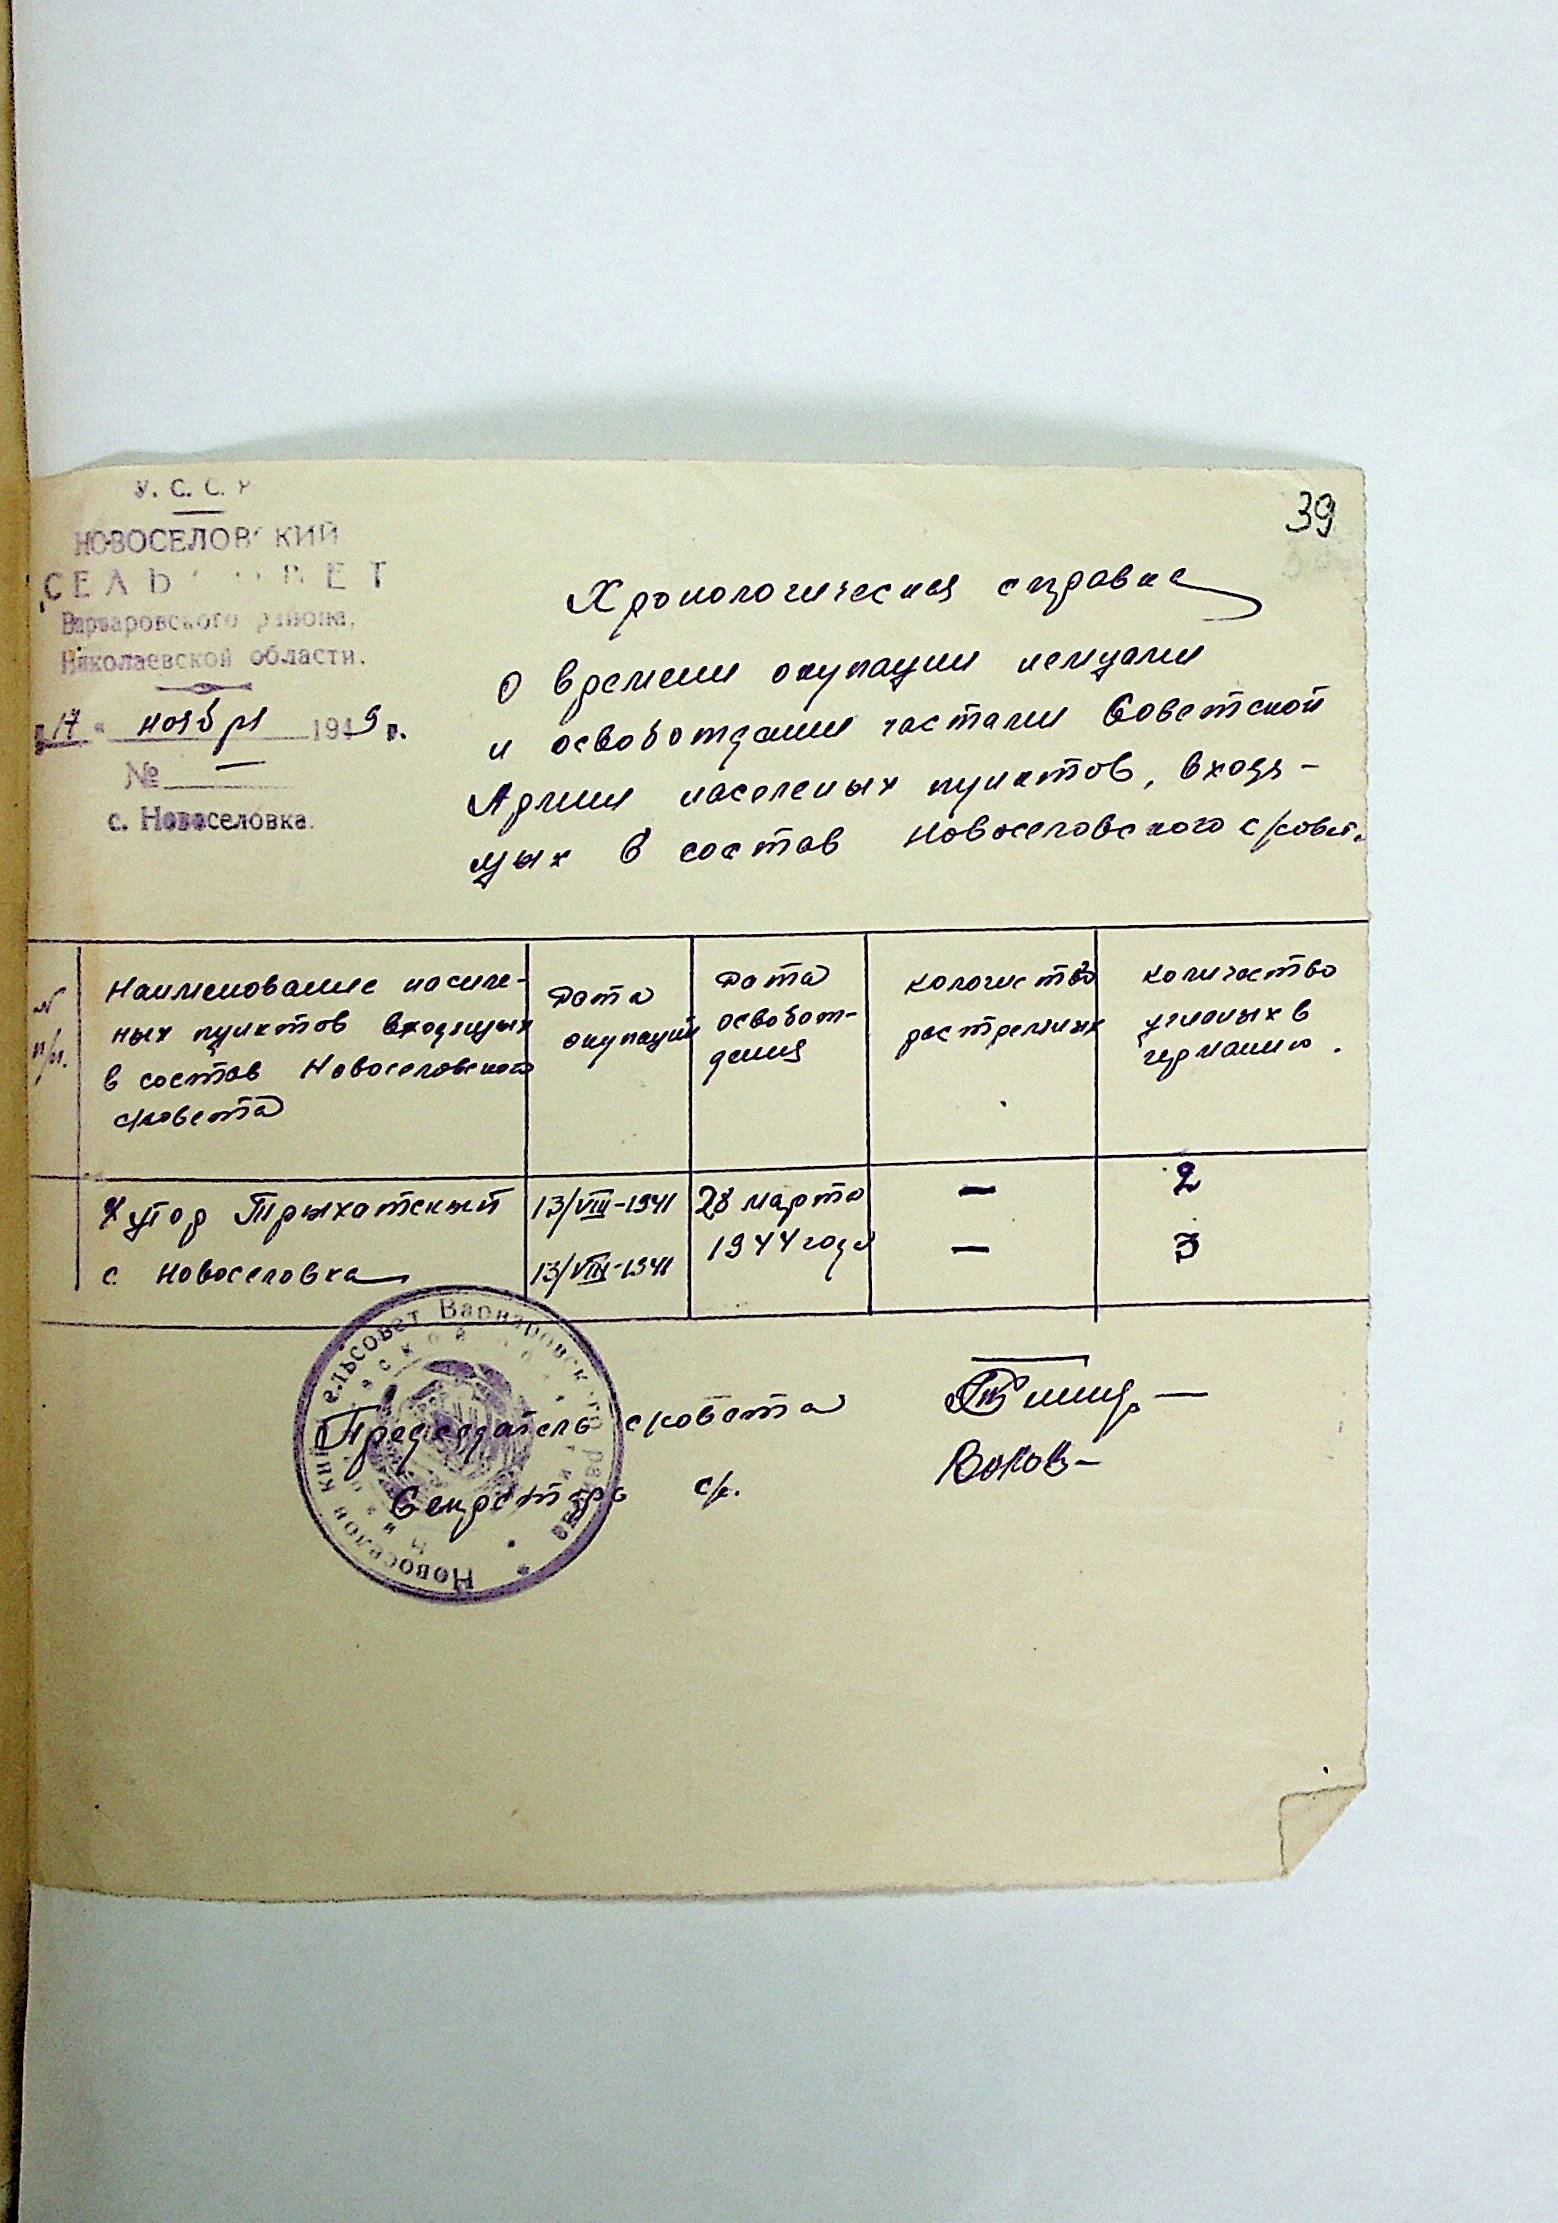 У. С. С. Р
39
НОВОСЕЛОВСКИЙ
СЕЛЬСОВЕТ
Варваровского района,
Николаевской области.
"17" ноября 1949 г.
№ —
с. Новоселовка.
Хронологическая справка
О времени окупации немцами
и освобождении частями Советской
Армии населеных пунктов, входя-
щих в состав Новоселовского с/совет.
N п/п.
Наименование населе-
ных пунктов входящих
в состав Новоселовского
с/совета
Дата
окупации
Дата
освобож-
дения
количество
растреляных
количество
угнаных в
германию.
Хутор Трыхатский 13/VIII-1941 28 марта — 2
с Новоселовка 13/VIII-1941 1944 года — 3
Председатель с/совета
Секретарь с/с.
Новоселовский сельсовет Варваровского района